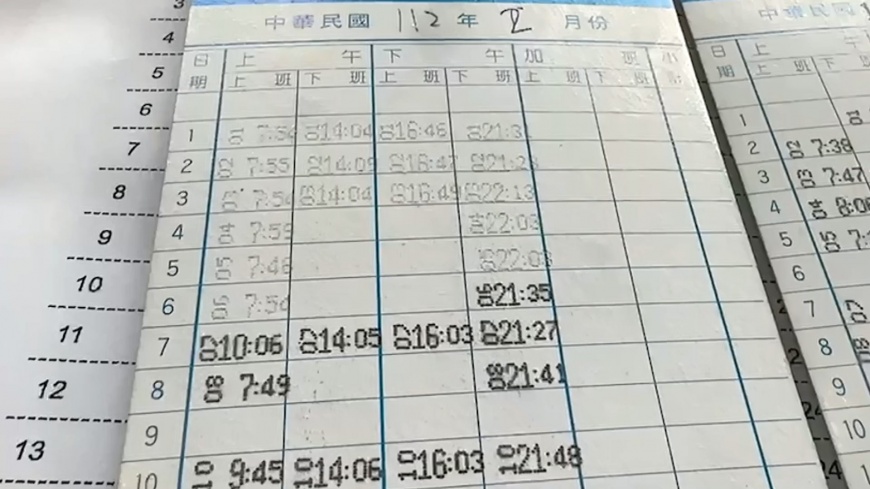 3
4
5
6
7
8
9
10
11
12
13
中華民國 112 年 月份
日期 上午 下午 加班 小計
上班 下班 上班 下班 上班 下班
1 01 7:54 01 14:04 01 16:46 01 21:31
2 02 7:55 02 14:05 02 16:47 02 21:28
3 03 7:54 03 14:04 03 16:49 03 22:13
4 04 7:59 04 22:03
5 05 7:48 05 22:03
6 06 7:54 06 21:35
7 07 10:06 07 14:05 07 16:03 07 21:27
8 08 7:49 08 21:41
9
10 10 9:45 10 14:06 10 16:03 10 21:48
中華民國
日期 上午
上班 下
1
2 02 7:38
3 03 7:47
4 04 8:06
5 05
6
7 07
8 08
9
10